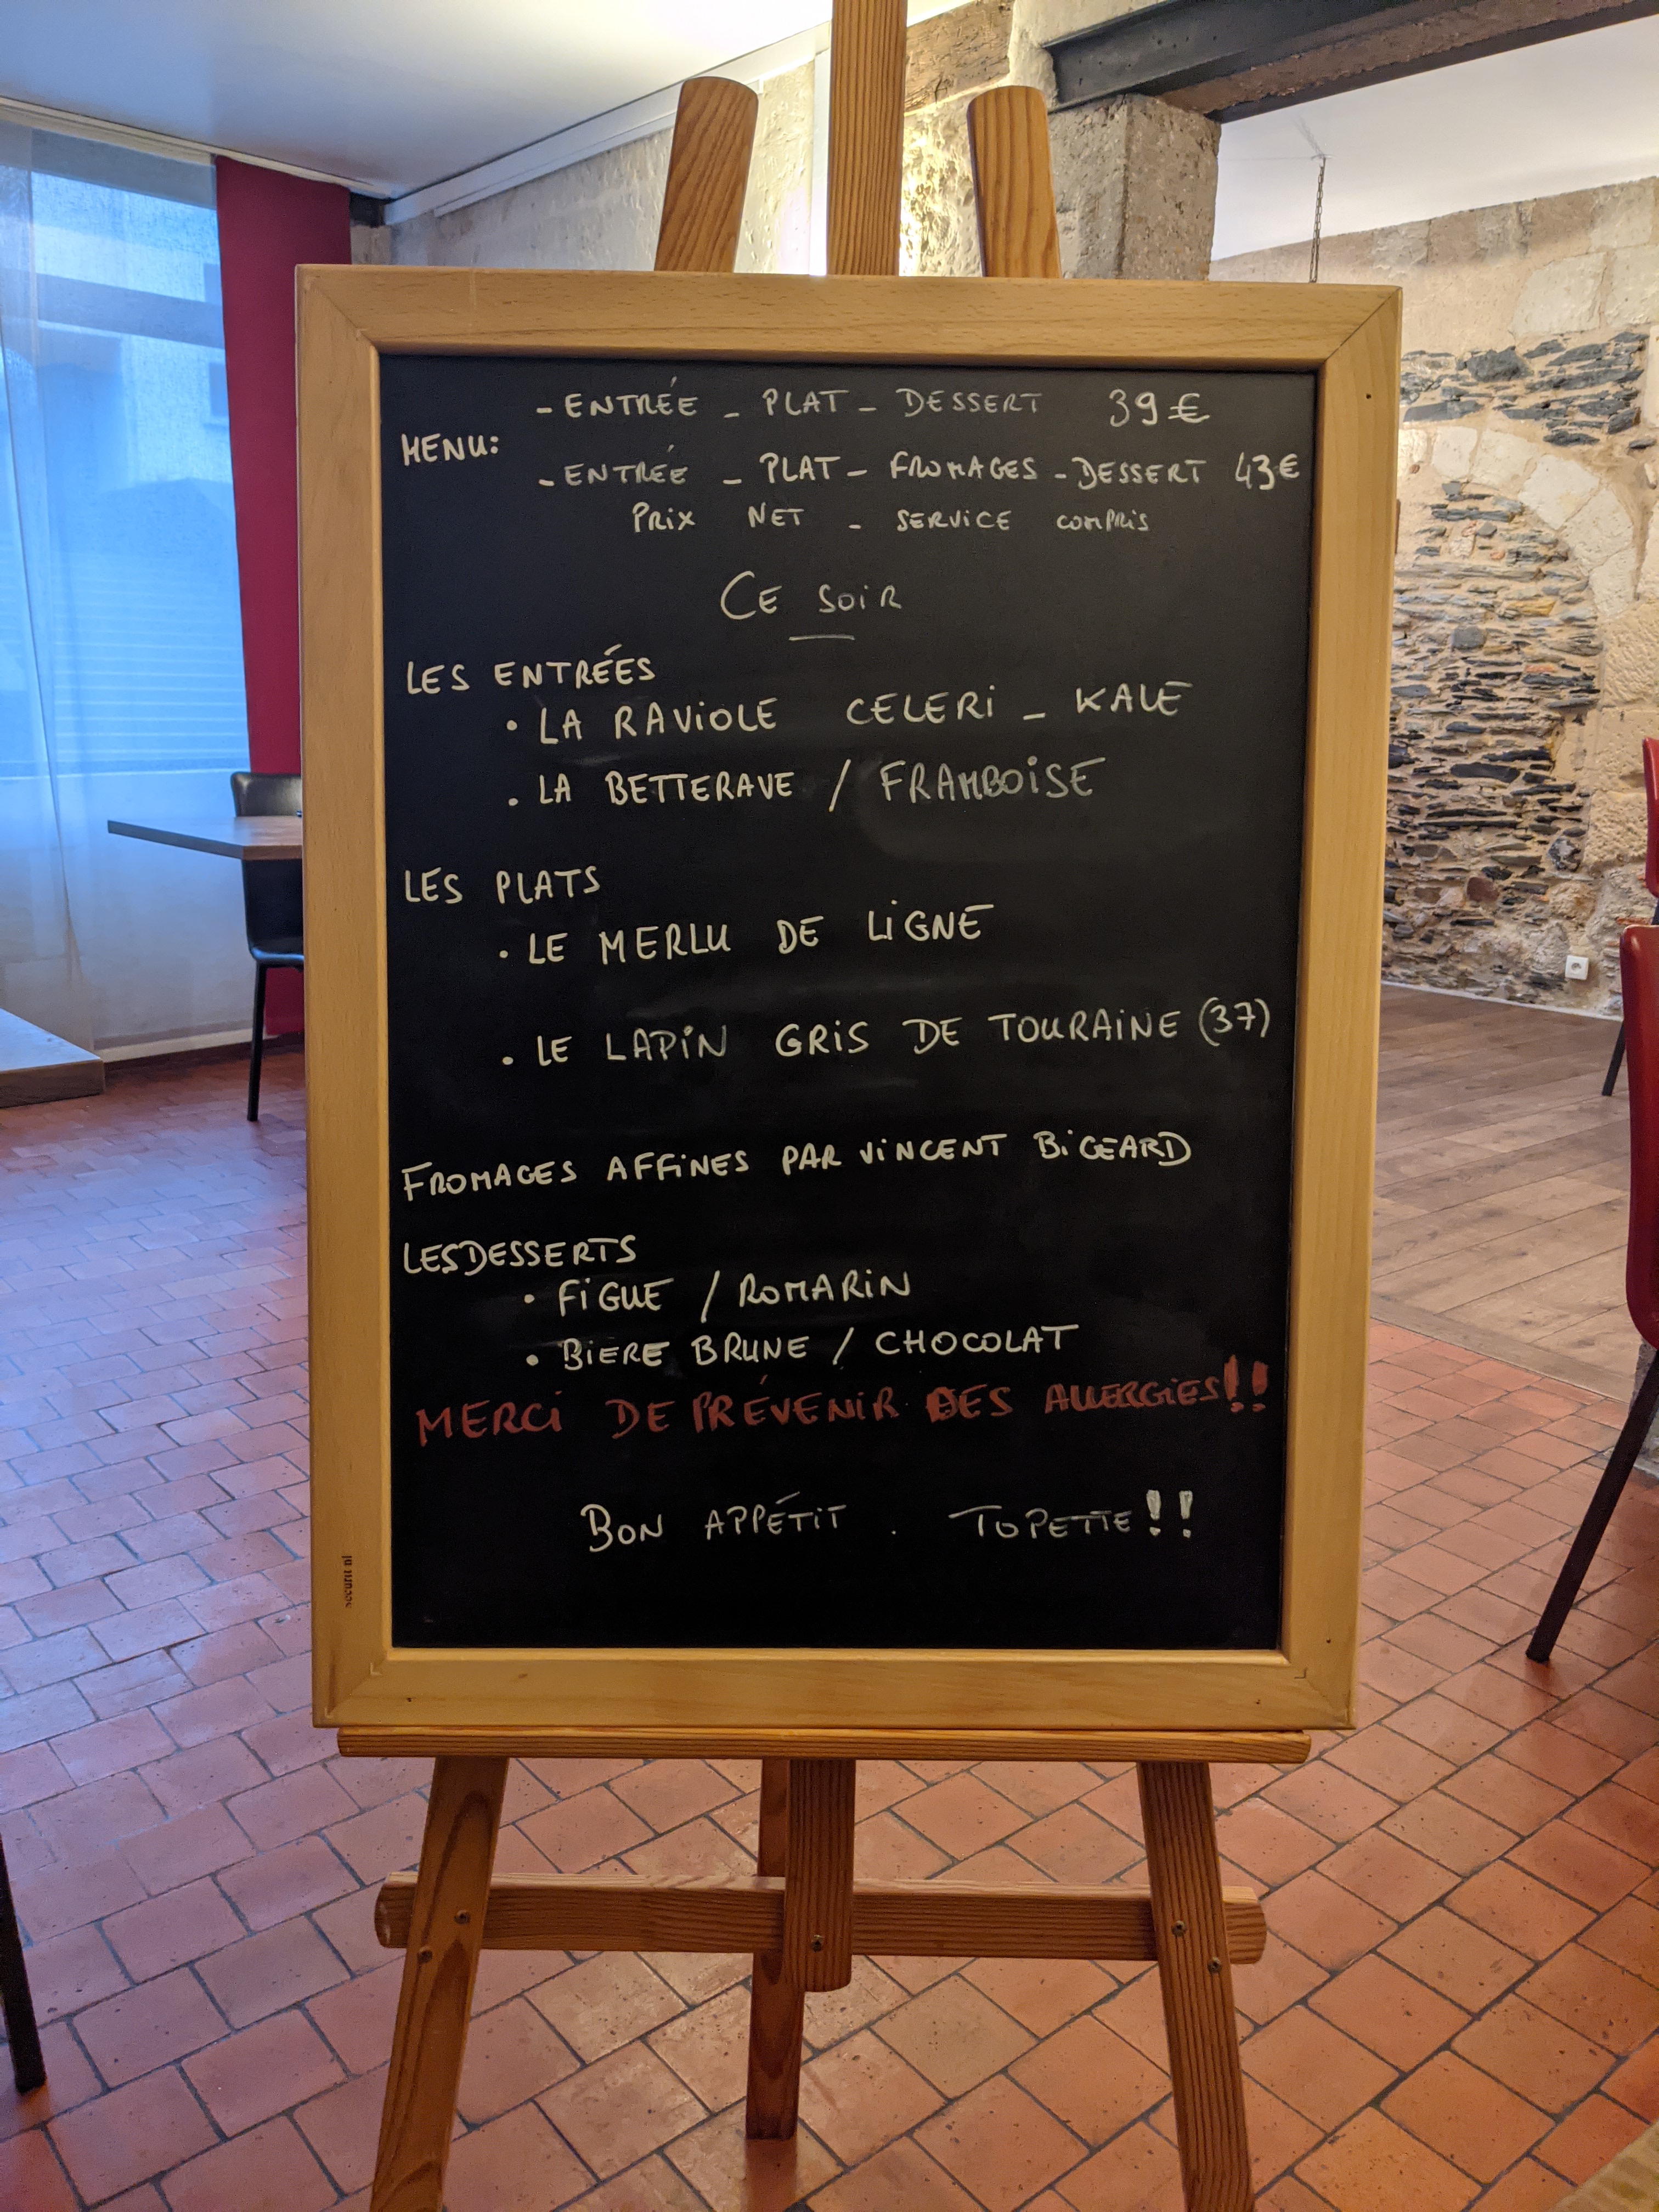 - ENTRÉE - PLAT - DESSERT 39€
MENU:
- ENTRÉE - PLAT - FROMAGES - DESSERT 43€
PRIX NET - SERVICE COMPRIS
CE SOIR
LES ENTRÉES
• LA RAVIOLE CELERI - KALE
• LA BETTERAVE / FRAMBOISE
LES PLATS
• LE MERLU DE LIGNE
• LE LAPIN GRIS DE TOURAINE (37)
FROMAGES AFFINES PAR VINCENT BIGEARD
LES DESSERTS
• FIGUE / ROMARIN
• BIERE BRUNE / CHOCOLAT
MERCI DE PRÉVENIR DES ALLERGIES!!
BON APPÉTIT. TOPETTE!!